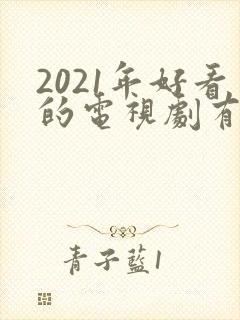 2021年好看
的電視劇有
青子藍1